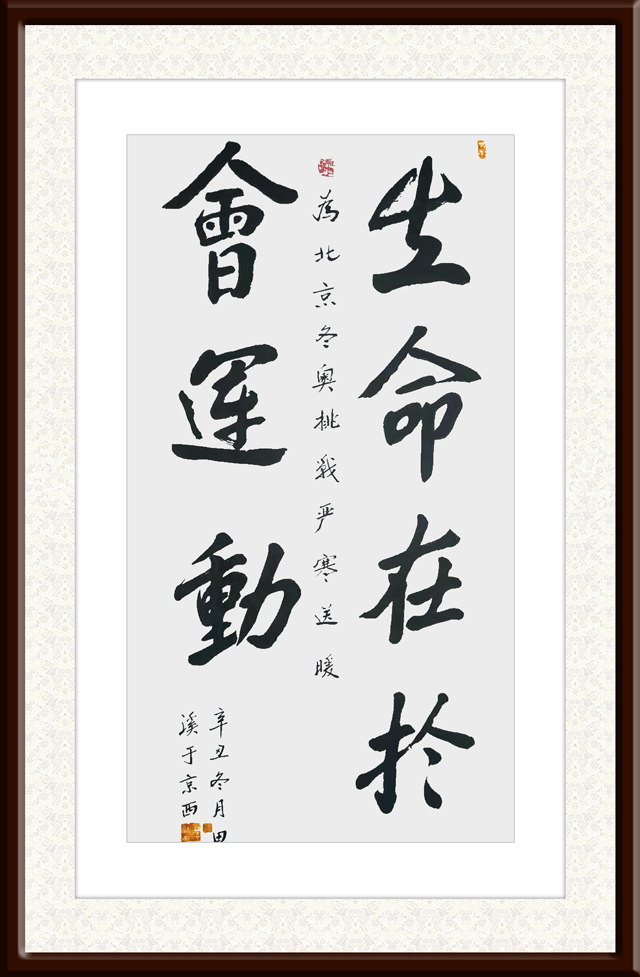 生命在於
為北京冬奥挑战严寒送暖
會運動
辛丑冬月田
溪于京西